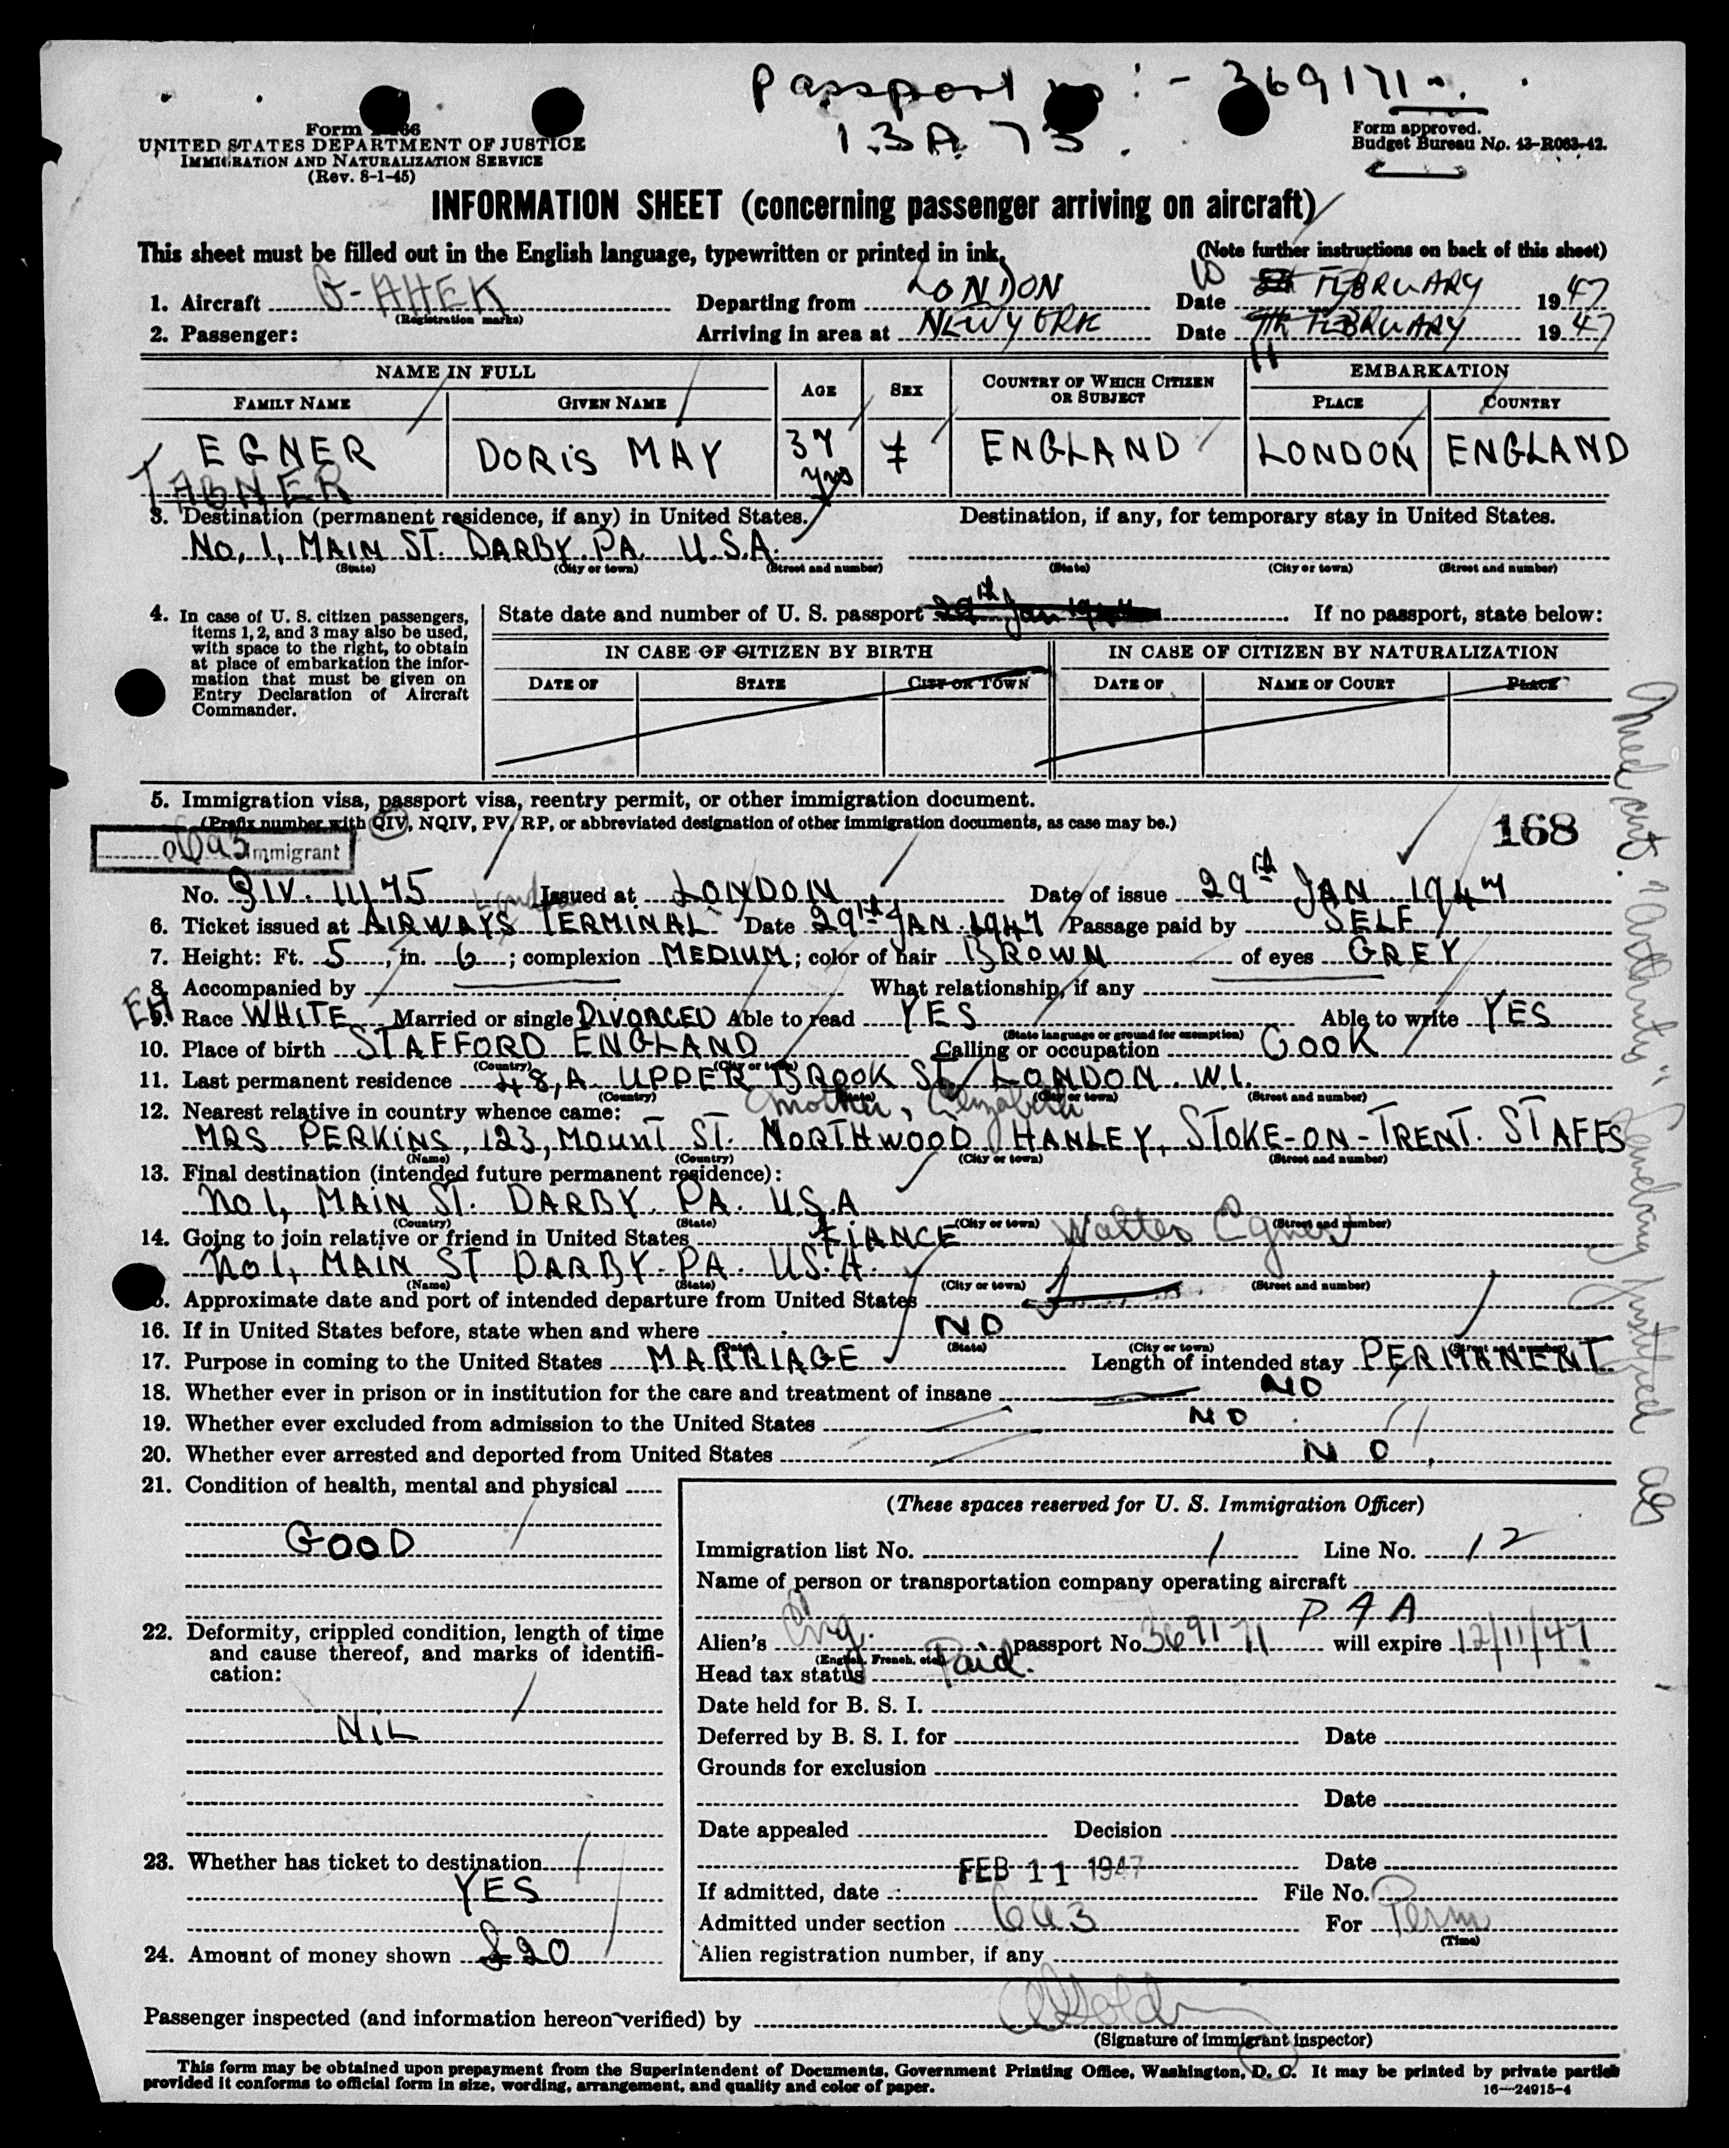 Passport no :- 369171.
13A 73.
Form
UNITED STATES DEPARTMENT OF JUSTICE
IMMIGRATION AND NATURALIZATION SERVICE
(Rev. 8-1-45)
Form approved.
Budget Bureau No. 43-R063-42.
INFORMATION SHEET (concerning passenger arriving on aircraft)
This sheet must be filled out in the English language, typewritten or printed in ink.
(Note further instructions on back of this sheet)
1. Aircraft G-AHEK Departing from LONDON Date 10 FEBRUARY 1947
(Registration marks)
2. Passenger: Arriving in area at NEW YORK Date 9th FEBRUARY 1947
11
NAME IN FULL AGE SEX COUNTRY OF WHICH CITIZEN OR SUBJECT EMBARKATION
FAMILY NAME GIVEN NAME PLACE COUNTRY
EGNER DORIS MAY 37 yrs F ENGLAND LONDON ENGLAND
3. Destination (permanent residence, if any) in United States. Destination, if any, for temporary stay in United States.
No, 1, MAIN ST. DARBY. PA. U.S.A.
(State) (City or town) (Street and number) (State) (City or town) (Street and number)
4. In case of U. S. citizen passengers, items 1, 2, and 3 may also be used, with space to the right, to obtain at place of embarkation the information that must be given on Entry Declaration of Aircraft Commander.
State date and number of U. S. passport 29th Jan If no passport, state below:
IN CASE OF CITIZEN BY BIRTH IN CASE OF CITIZEN BY NATURALIZATION
DATE OF STATE CITY OR TOWN DATE OF NAME OF COURT PLACE
5. Immigration visa, passport visa, reentry permit, or other immigration document.
(Prefix number with QIV, NQIV, PV, RP, or abbreviated designation of other immigration documents, as case may be.)
168
immigrant
No. QIV. 11175 London Issued at LONDON Date of issue 29th JAN. 1947
6. Ticket issued at AIRWAYS TERMINAL Date 29th JAN. 1947 Passage paid by SELF
7. Height: Ft. 5, in. 6; complexion MEDIUM; color of hair BROWN of eyes GREY
8. Accompanied by What relationship, if any
9. Race WHITE Married or single DIVORCED Able to read YES Able to write YES
(State language or ground for exemption)
10. Place of birth STAFFORD ENGLAND Calling or occupation COOK
(Country) (City or town)
11. Last permanent residence 48, A. UPPER BROOK ST. LONDON. W.1.
(Country) (State) (City or town) (Street and number)
12. Nearest relative in country whence came: mother, Elizabeth
MRS PERKINS, 123, MOUNT ST. NORTHWOOD HANLEY, STOKE-ON-TRENT. STAFFS
(Name) (Country) (City or town) (Street and number)
13. Final destination (intended future permanent residence):
No 1, MAIN ST. DARBY. PA. U.S.A
(Country) (State) (City or town) (Street and number)
14. Going to join relative or friend in United States FIANCE Walter Egner
No 1, MAIN ST DARBY. PA. U.S.A.
(Name) (State) (City or town) (Street and number)
Approximate date and port of intended departure from United States
16. If in United States before, state when and where NO
(State) (City or town) (Street and number)
17. Purpose in coming to the United States MARRIAGE Length of intended stay PERMANENT
18. Whether ever in prison or in institution for the care and treatment of insane NO
19. Whether ever excluded from admission to the United States NO
20. Whether ever arrested and deported from United States NO.
21. Condition of health, mental and physical
GOOD
22. Deformity, crippled condition, length of time and cause thereof, and marks of identification:
NIL
23. Whether has ticket to destination
YES
24. Amount of money shown £20
(These spaces reserved for U. S. Immigration Officer)
Immigration list No. 1 Line No. 12
Name of person or transportation company operating aircraft
PAA
Alien's Eng. passport No. 369171 will expire 12/11/47
(English, French, etc.)
Head tax status Paid.
Date held for B. S. I.
Deferred by B. S. I. for Date
Grounds for exclusion
Date
Date appealed Decision
Date
If admitted, date FEB 11 1947 File No.
Admitted under section 6a3 For Perm
(Time)
Alien registration number, if any
Passenger inspected (and information hereon verified) by
(Signature of immigrant inspector)
This form may be obtained upon prepayment from the Superintendent of Documents, Government Printing Office, Washington, D. C. It may be printed by private parties
provided it conforms to official form in size, wording, arrangement, and quality and color of paper.
16—24915-4